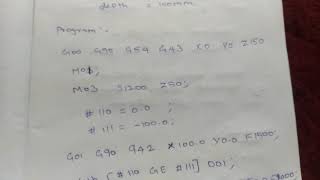 depth = 100mm
Program :-
G00 G90 G54 G43 X0 Y0 Z150
M08;
M03 S1200 Z50;
#110 = 0.0 ;
#111 = -100.0 ;
G01 G90 G42 X100.0 Y0.0 F1500;
[#110 GE #111] DO1;